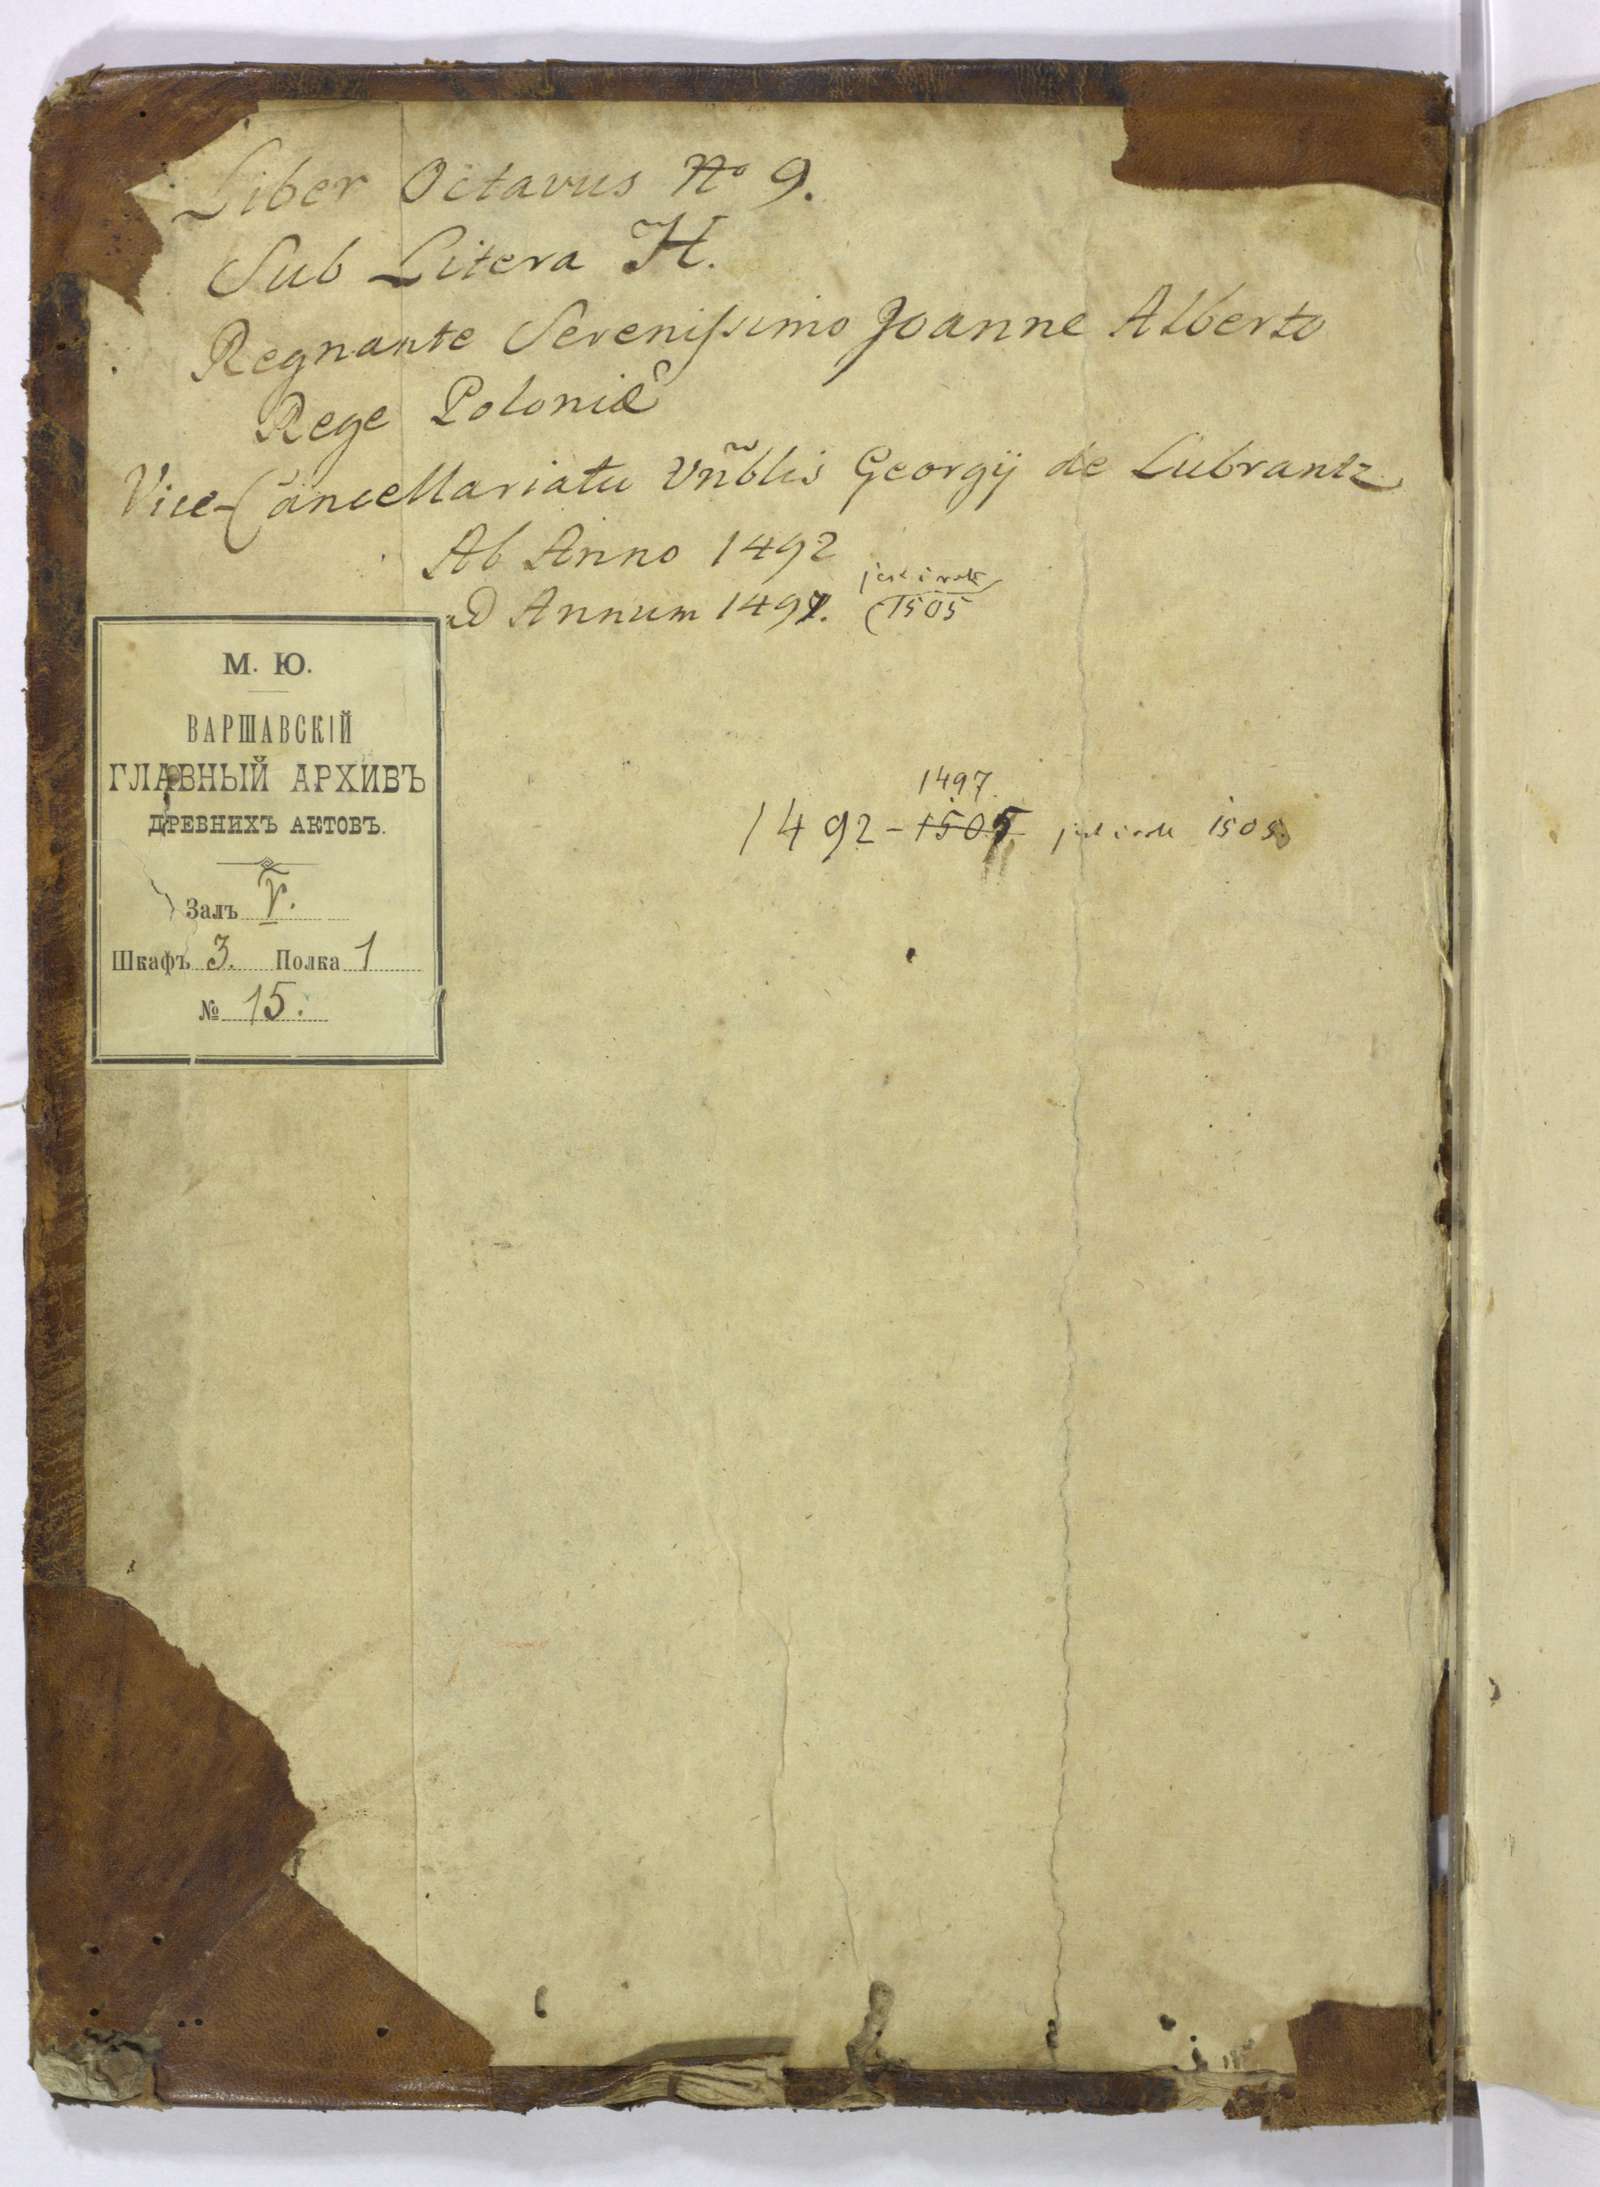 Liber Octavus No 9.
Sub Litera H.
Regnante Serenissimo Joanne Alberto
Rege Poloniæ
Vice-Cancellariatu Vñblis Georgÿ de Lubrantz
Ab Anno 1492
ad Annum 1497. (1505
jest i rok
М. Ю.
ВАРШАВСКІЙ
ГЛАВНЫЙ АРХИВЪ
ДРЕВНИХЪ АКТОВЪ.
Залъ V.
Шкафъ 3. Полка 1
№ 15.
1497.
1492-1505 jest i rok 1505.